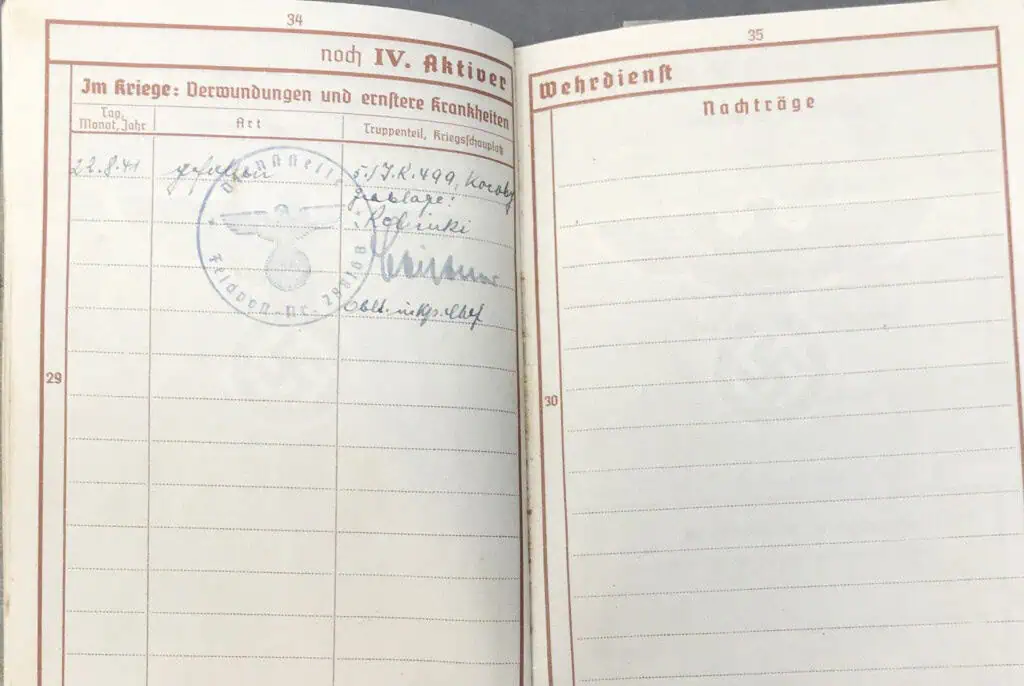 34
noch IV. Aktiver
Im Kriege: Verwundungen und ernstere Krankheiten
Tag, Monat, Jahr
Art
Truppenteil, Kriegsschauplatz
22.8.41 gefallen 5./J.R. 499,
Dienststelle
Feldpost Nr. 29816B
Oblt. u. Kp. Chef
29
35
Wehrdienst
Nachträge
30